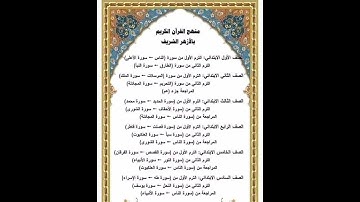 منهج القرآن الكريم
بالأزهر الشريف
الصف الأول الابتدائي: الترم الأول من سورة (الناس ← سورة الأعلى)
الترم الثاني من سورة (الطارق ← سورة النبأ)
الصف الثاني الابتدائي: الترم الأول من سورة (المرسلات ← سورة الملك)
الترم الثاني من سورة (التحريم ← سورة المجادلة)
المراجعة جزء (عم)
الصف الثالث الابتدائي: الترم الأول من (سورة الحديد ← سورة محمد)
الترم الثاني من (سورة الأحقاف ← سورة الشورى)
المراجعة من (سورة الناس ← سورة المجادلة)
الصف الرابع الابتدائي: الترم الأول من (سورة فصلت ← سورة فاطر)
الترم الثاني من (سورة سبأ ← سورة العنكبوت)
المراجعة من (سورة الناس ← سورة الشورى)
الصف الخامس الابتدائي: الترم الأول من (سورة القصص ← سورة الفرقان)
الترم الثاني من (سورة النور ← سورة الأنبياء)
المراجعة من (سورة الناس ← سورة العنكبوت)
الصف السادس الابتدائي: الترم الأول من (سورة طه ← سورة الإسراء)
الترم الثاني من (سورة النحل ← سورة يوسف)
المراجعة من (سورة الناس ← سورة الأنبياء)